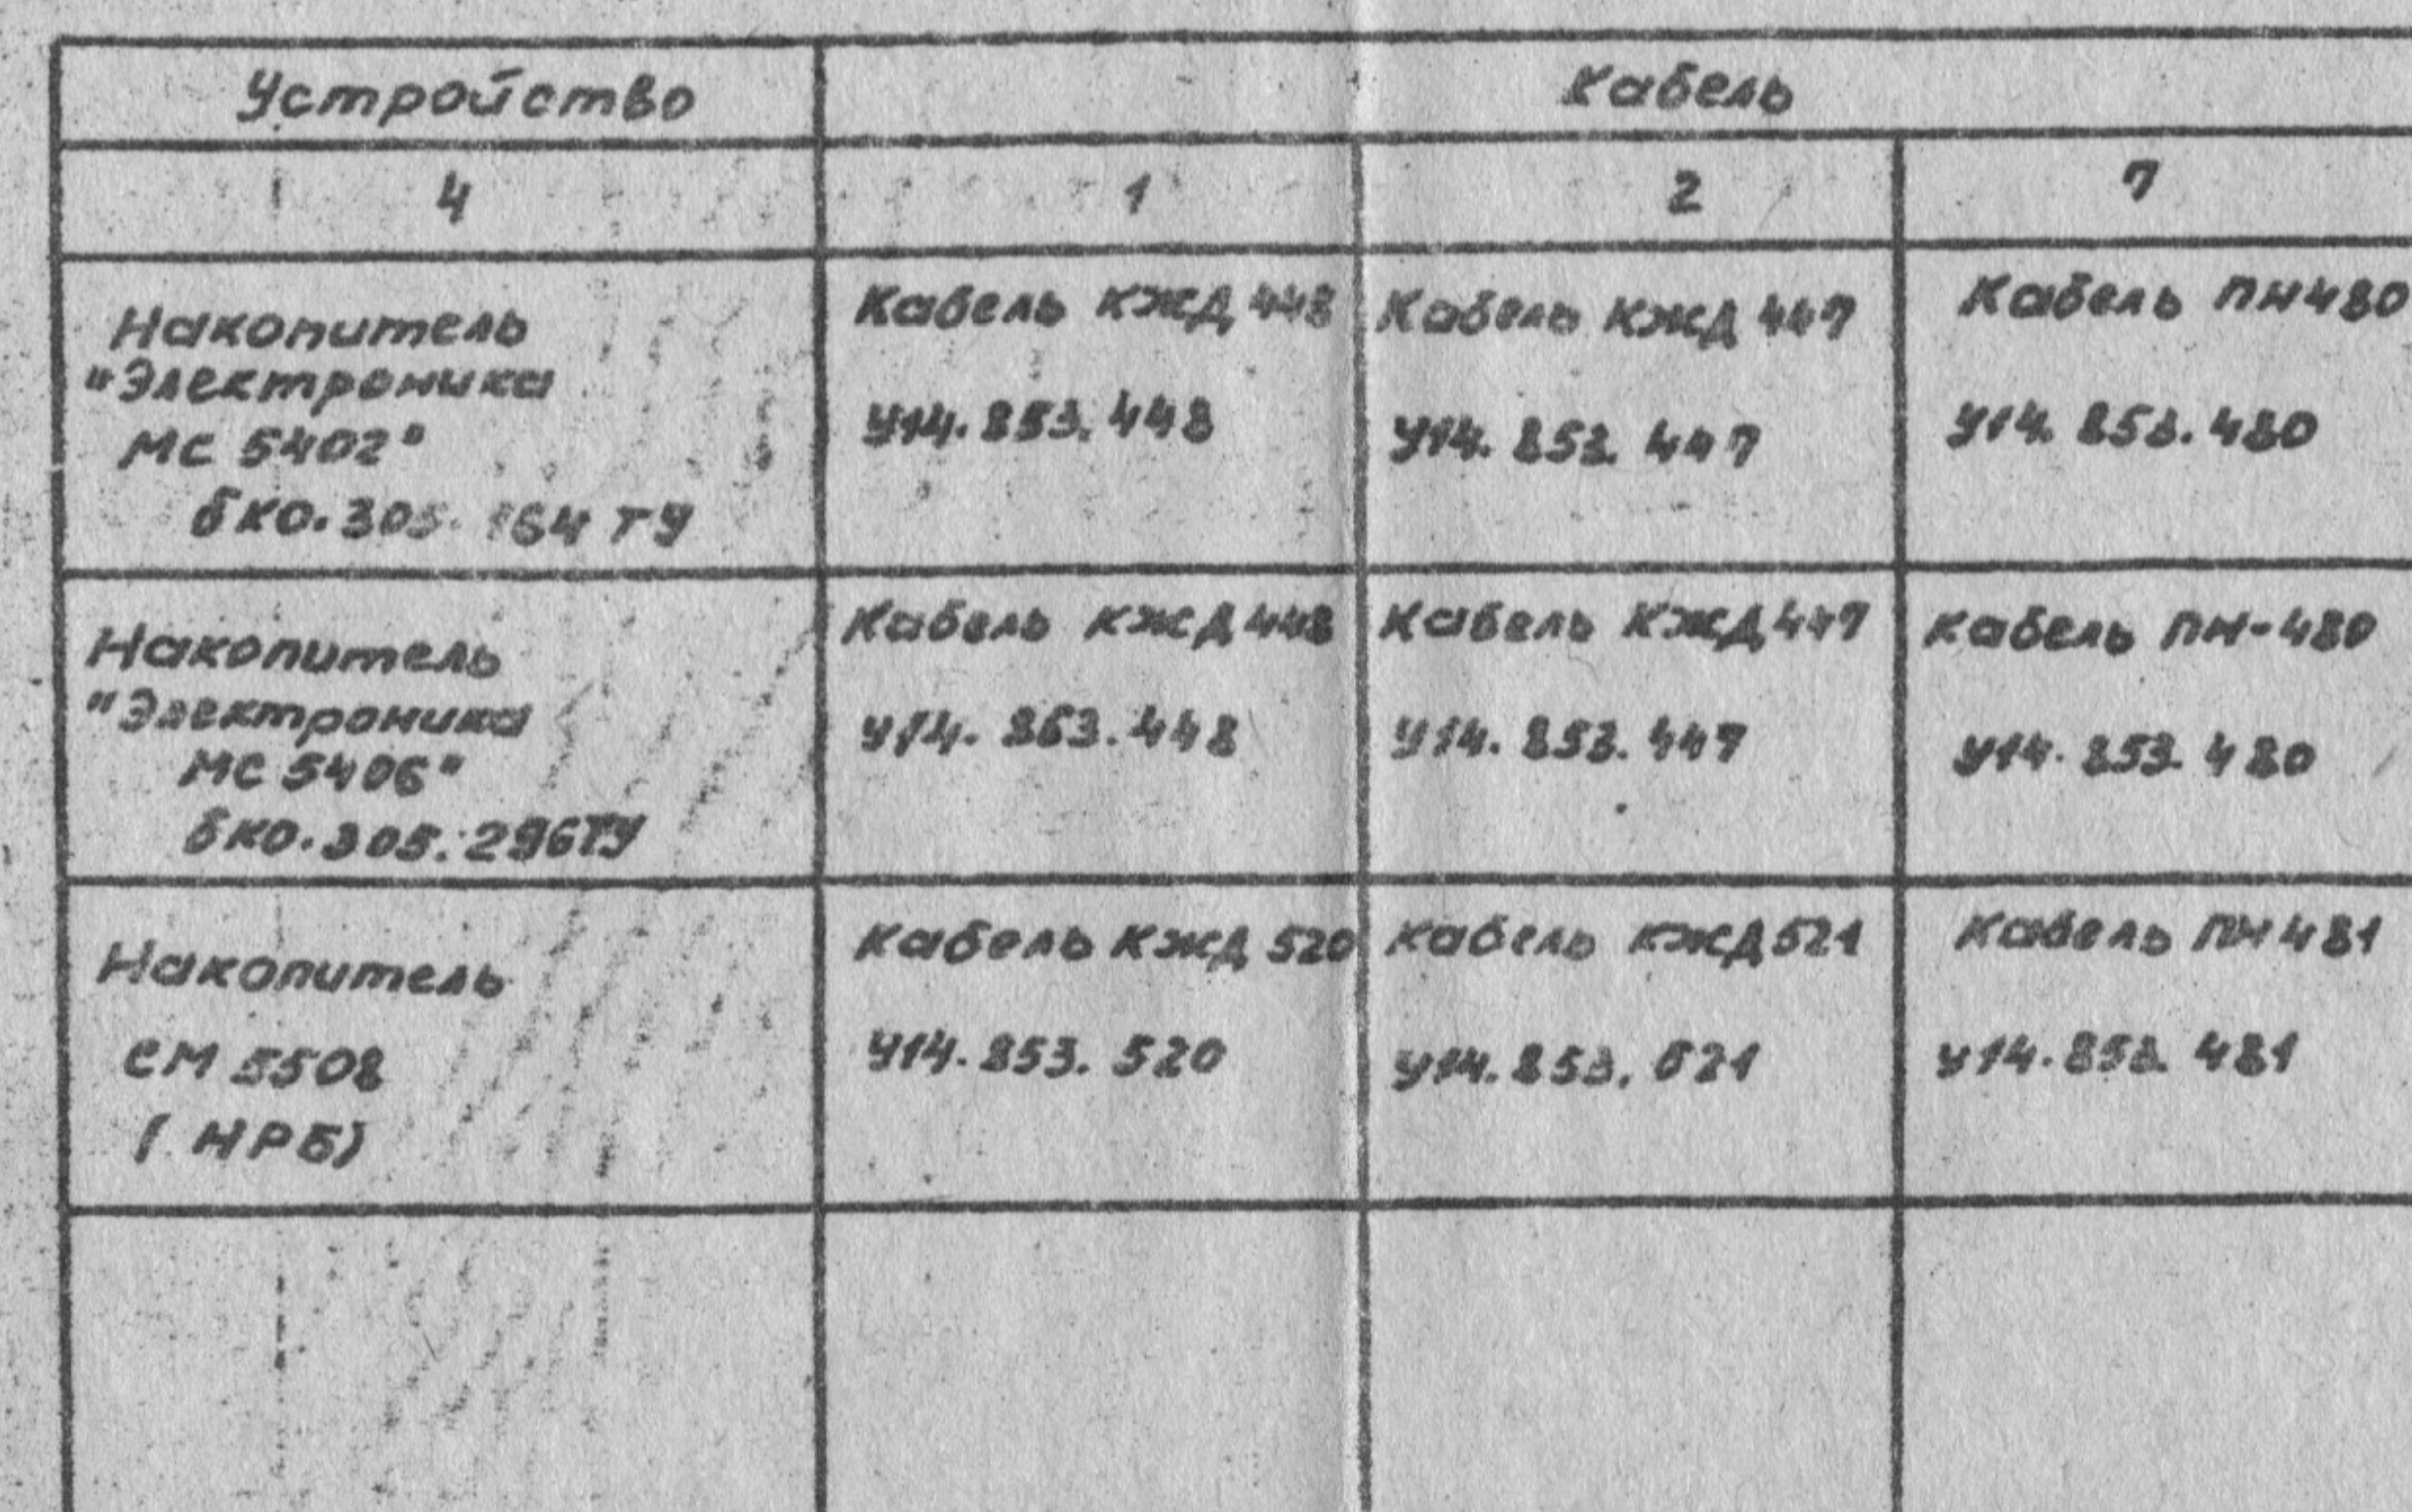 Устройство
Кабель
4
1
2
7
Накопитель
"Электроника
МС 5402"
бКО.305.164 ТУ
Кабель КЖД 448
У14.853.448
Кабель КЖД 447
У14.853.447
Кабель ПН480
У14.853.480
Накопитель
"Электроника
МС 5406"
бКО.305.296ТУ
Кабель КЖД 448
У14.853.448
Кабель КЖД 447
У14.853.447
Кабель ПН-480
У14.853.480
Накопитель
СМ 5508
(НРБ)
Кабель КЖД 520
У14.853.520
Кабель КЖД 521
У14.853.521
Кабель ПН481
У14.853.481